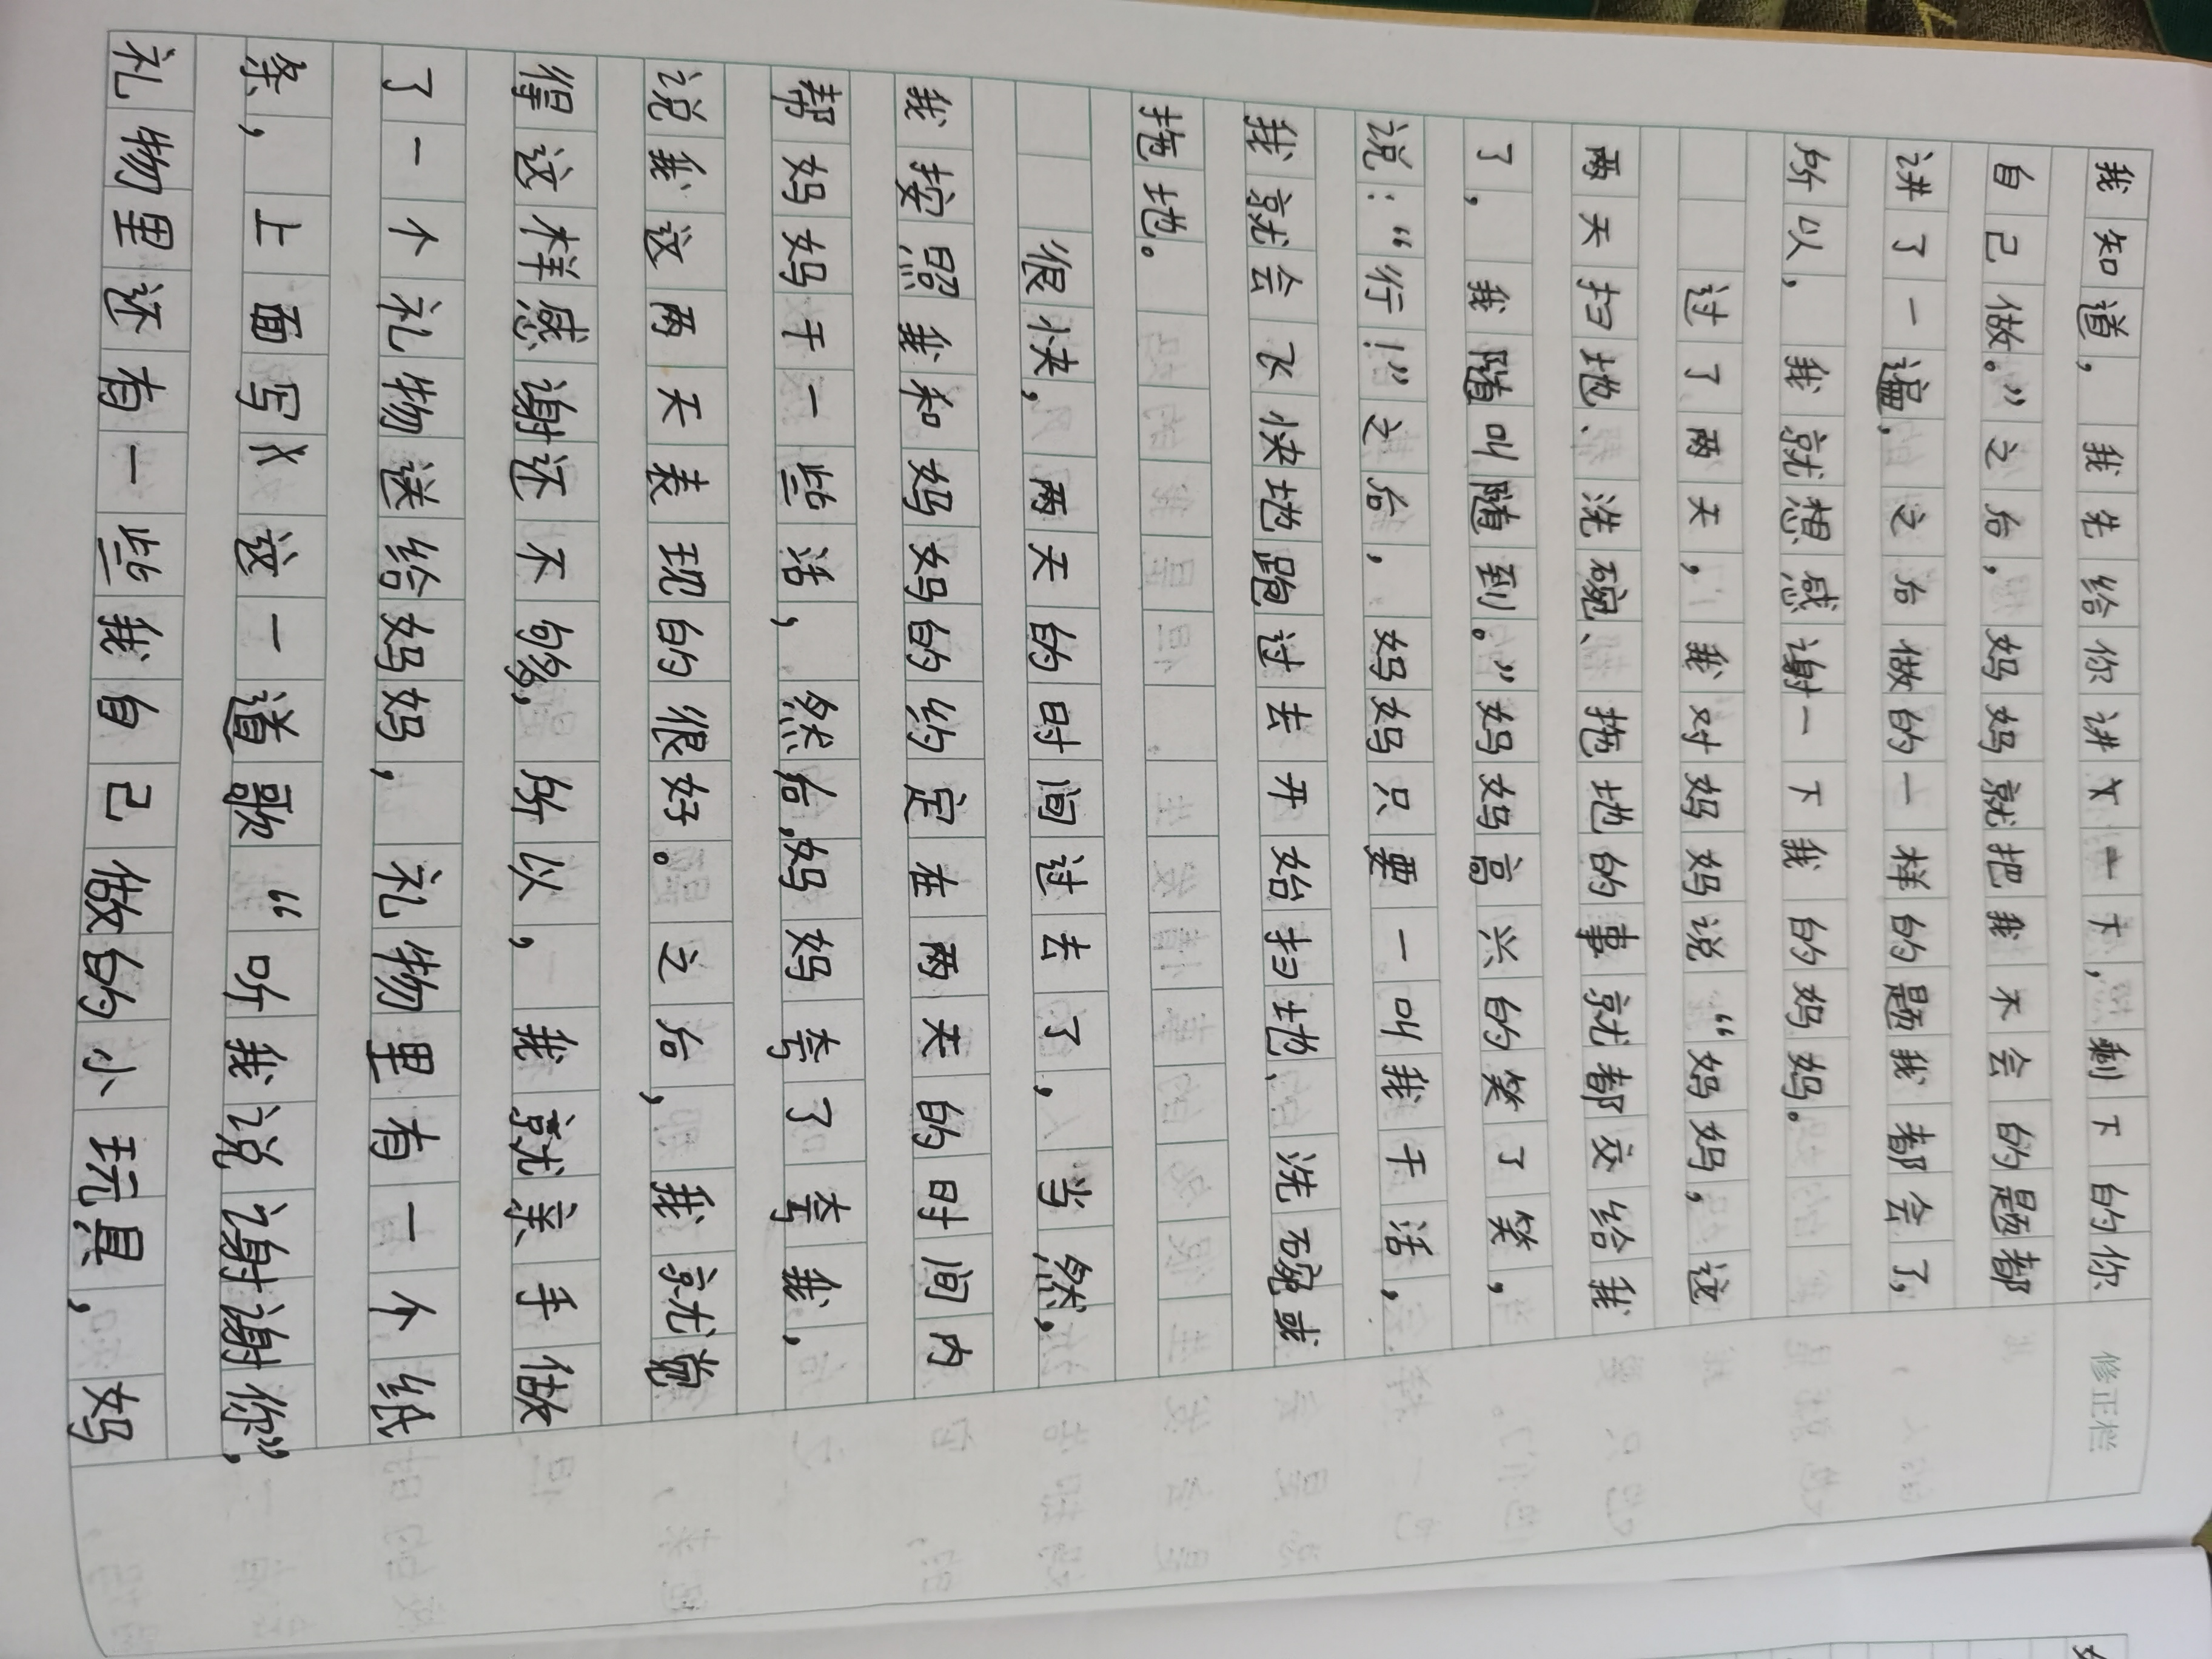 我知道，我先给你讲一下，剩下的你
自己做。”之后，妈妈就把我不会的题都
讲了一遍，之后做的一样的题我都会了，
所以，我就想感谢一下我的妈妈。
过了两天，我对妈妈说“妈妈，这
两天扫地、洗碗、拖地的事就都交给我
了，我随叫随到。”妈妈高兴的笑了笑，
说：“行！”之后，妈妈只要一叫我干活，
我就会飞快地跑过去开始扫地、洗碗或
拖地。
很快，两天的时间过去了，当然，
我按照我和妈妈的约定在两天的时间内
帮妈妈干一些活，然后，妈妈夸了夸我，
说我这两天表现的很好。之后，我就觉
得这样感谢还不够，所以，我就亲手做
了一个礼物送给妈妈，礼物里有一个纸
条，上面写这一道歌“听我说谢谢你”，
礼物里还有一些我自己做的小玩具，妈
修正栏